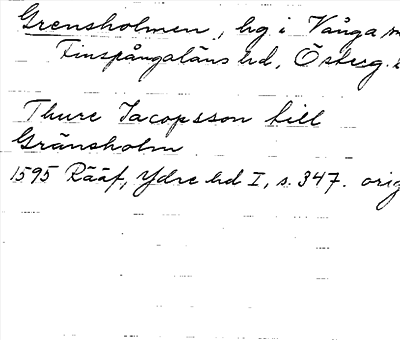 Grensholmen, hg i Vånga
Finspångaläns hd, Österg.
Thure Jacopsson till
Gränsholm
1595 Rääf, Ydre hd I, s. 347. orig